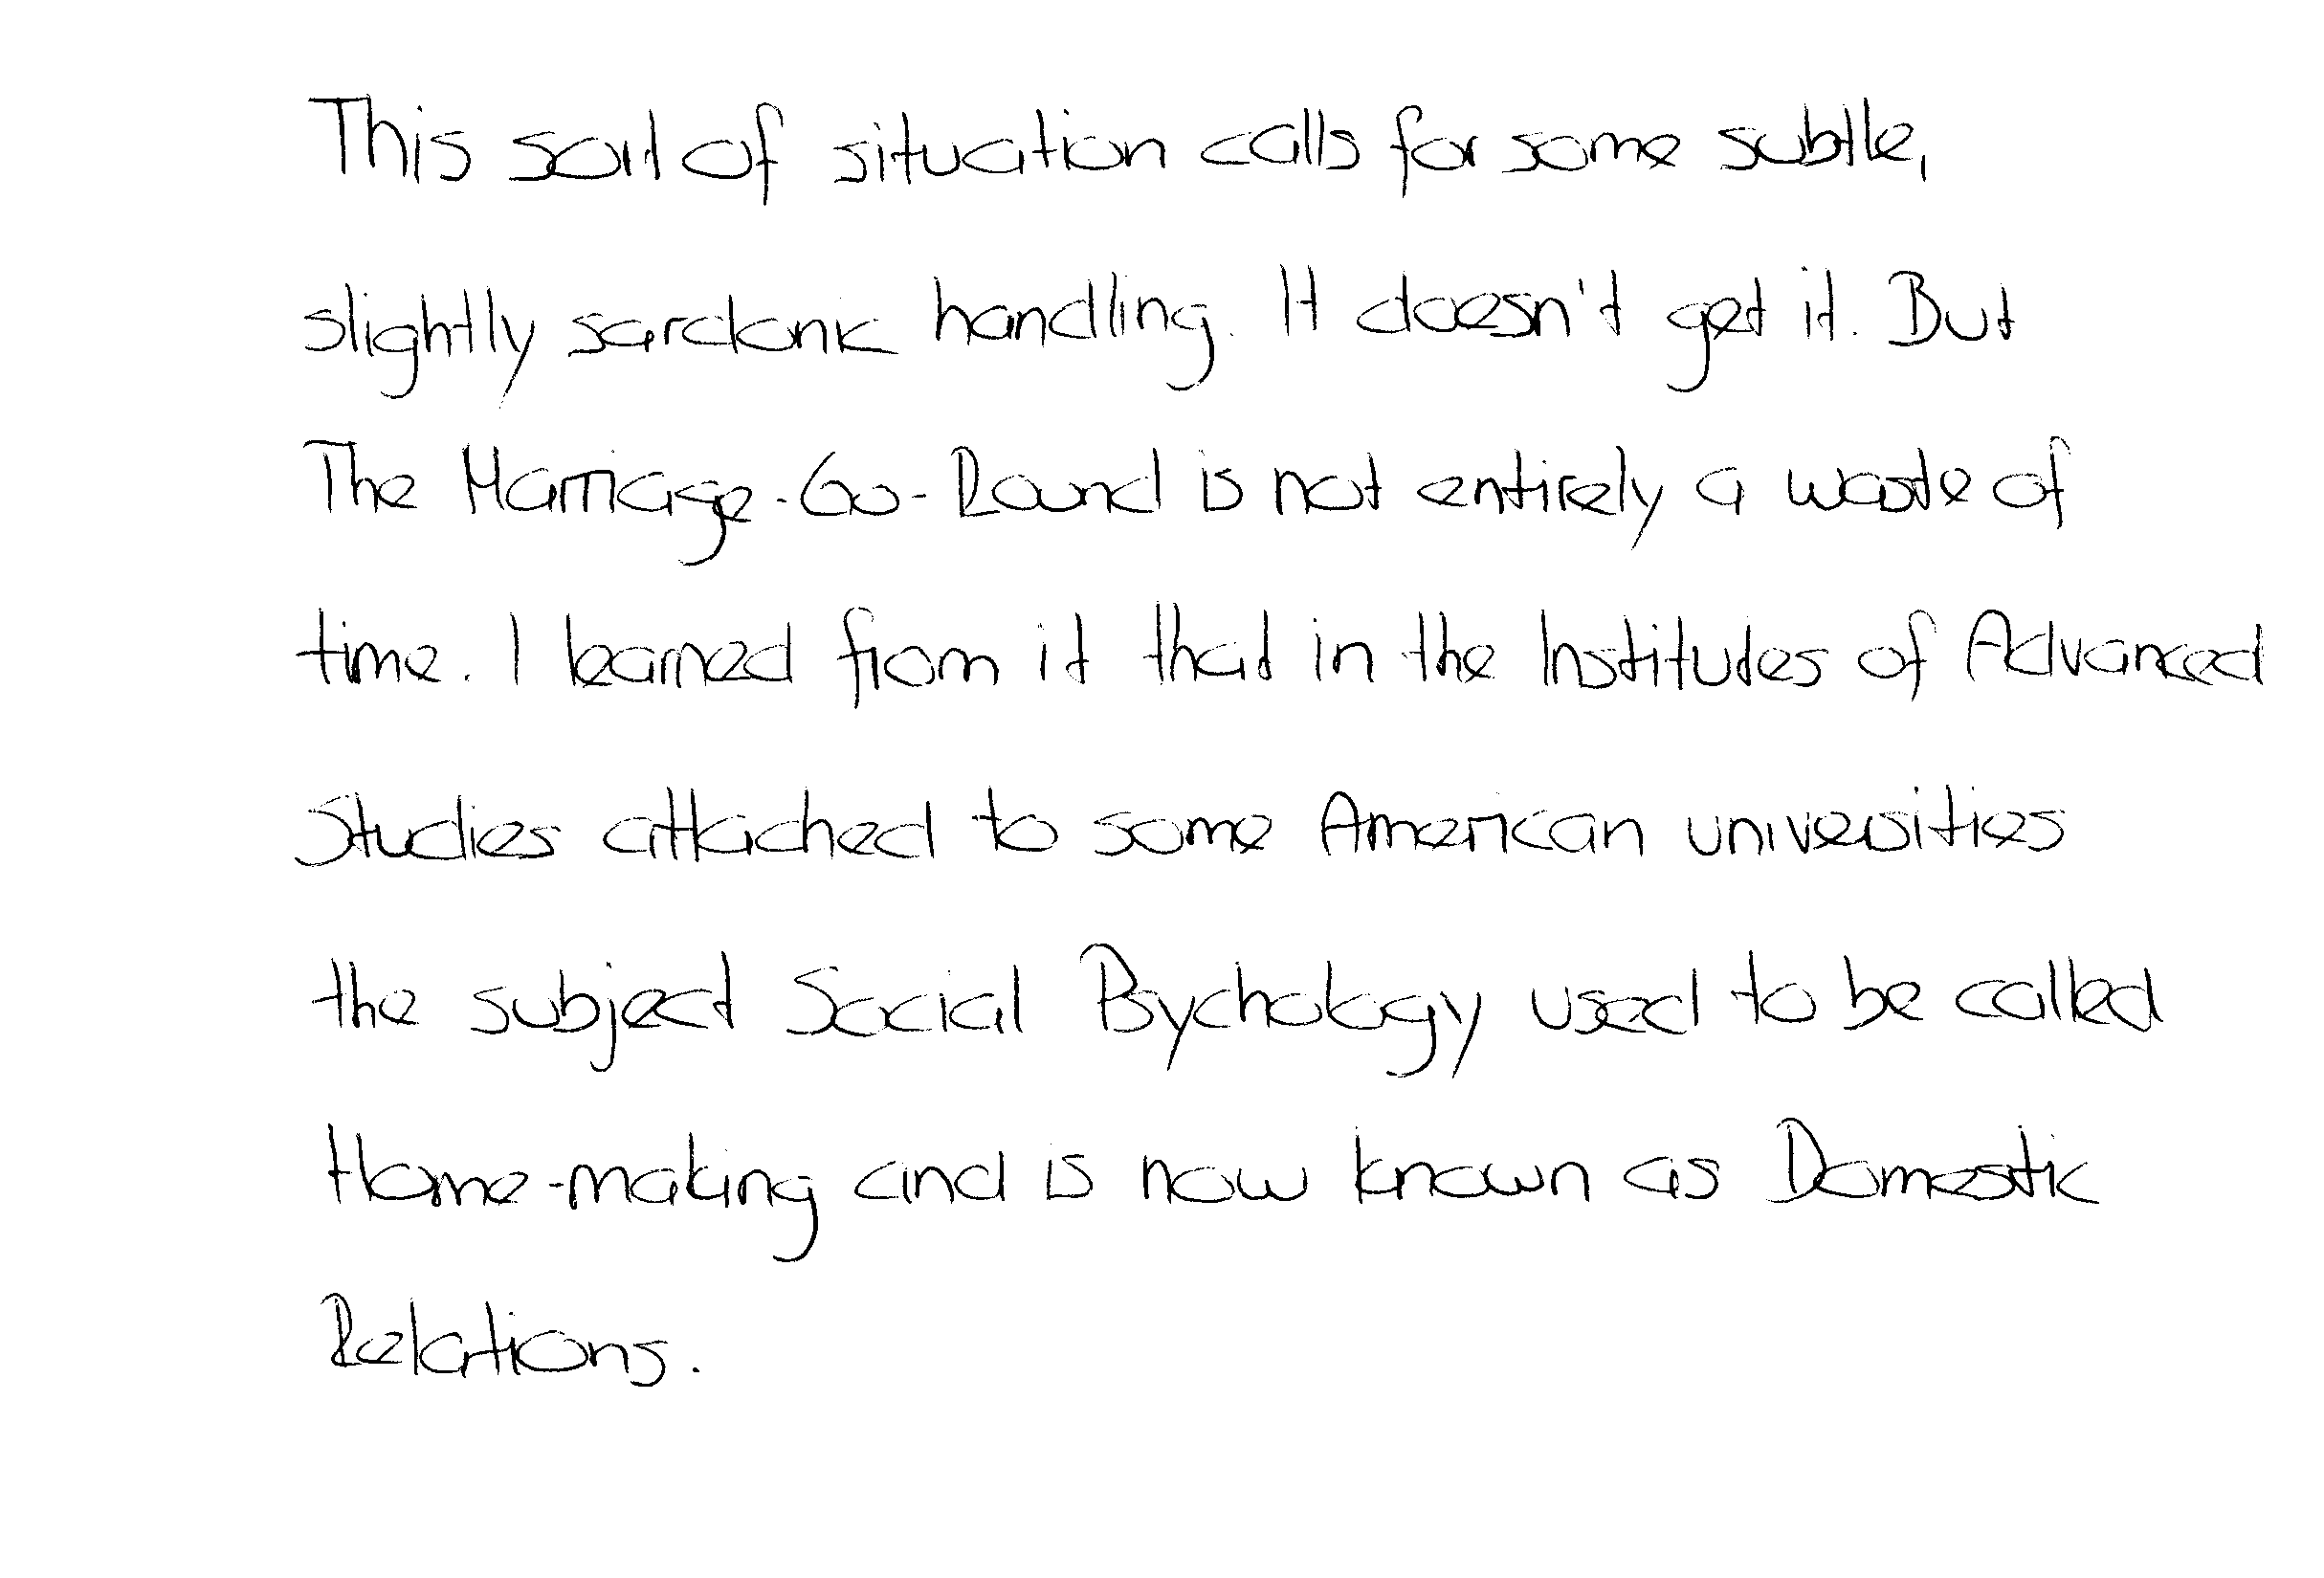 This sort of situation calls for some subtle,
slightly sardonic handling. It doesn't get it. But
The Marriage-Go-Round is not entirely a waste of
time. I learned from it that in the Institutes of Advanced
Studies attached to some American universities
the subject Social Psychology used to be called
Home-making and is now known as Domestic
Relations.